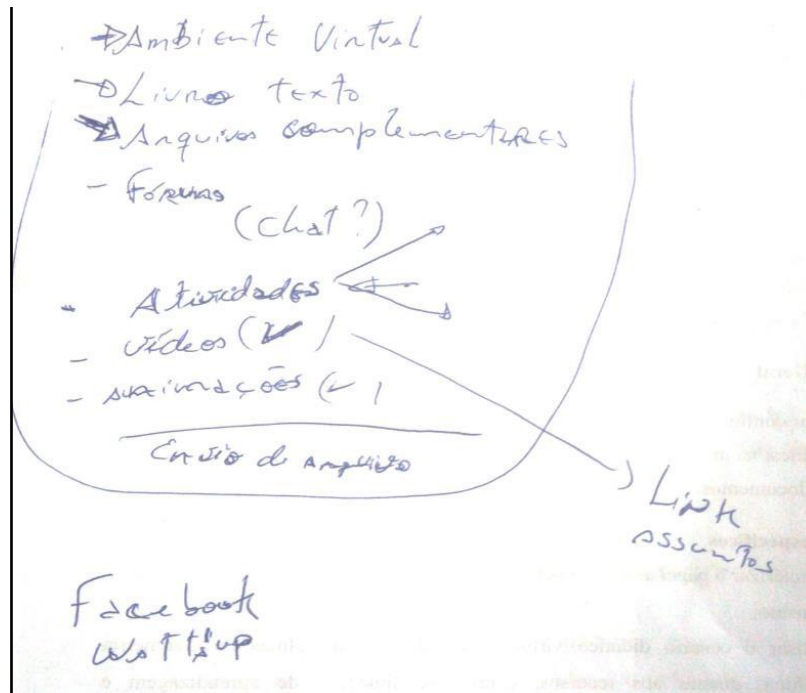 → Ambiente Virtual
→ Livro texto
→ Arquivos complementARES
- FóRUNS
(Chat?)
- Atividades
- Vídeos (✓)
- (✓)
Envio de Arquivo
Link
Assuntos
Facebook